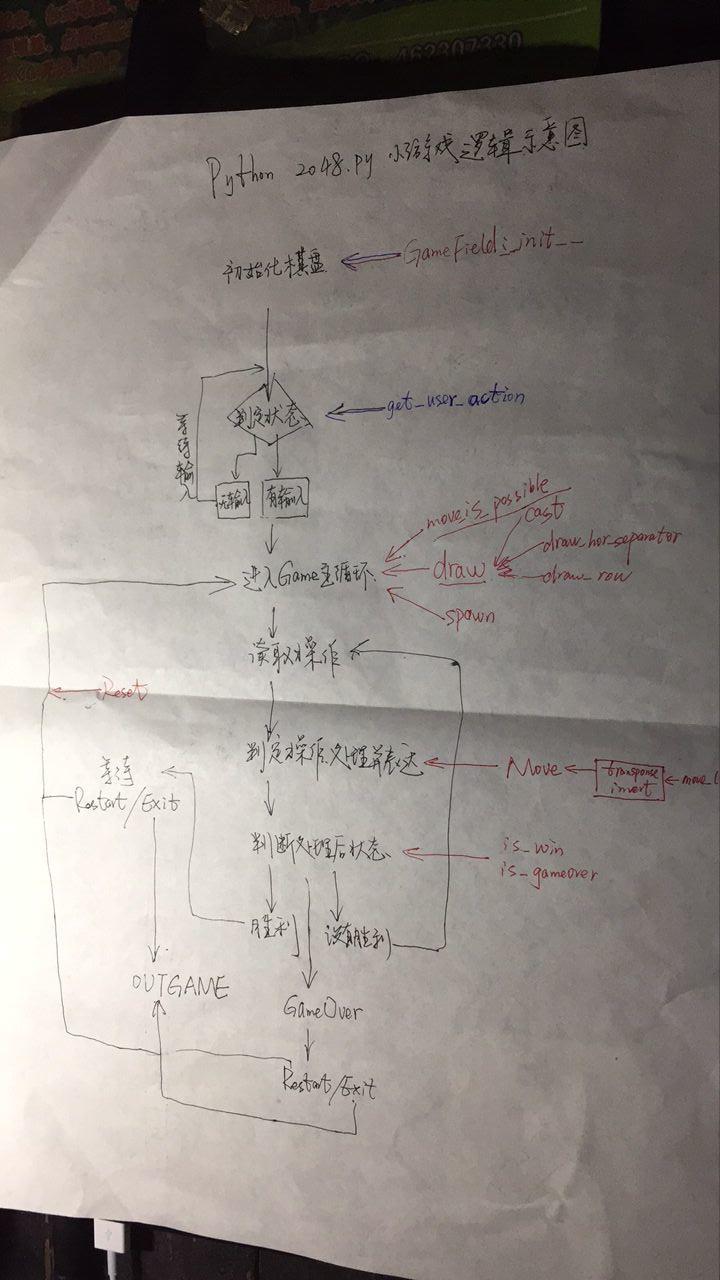 462307330
Python 2048.py 小游戏逻辑示意图
初始化棋盘
GameField:__init__
判定状态
get_user_action
等待输入
无输入
有输入
move_is_possible
cast
draw_hor_separator
进入Game主循环
draw
draw_row
spawn
读取操作
Reset
判定操作处理并表达
Move
transpose
invert
等待
Restart/Exit
判断处理后状态
is_win
is_gameover
胜利
没有胜利
OUTGAME
GameOver
Restart/Exit